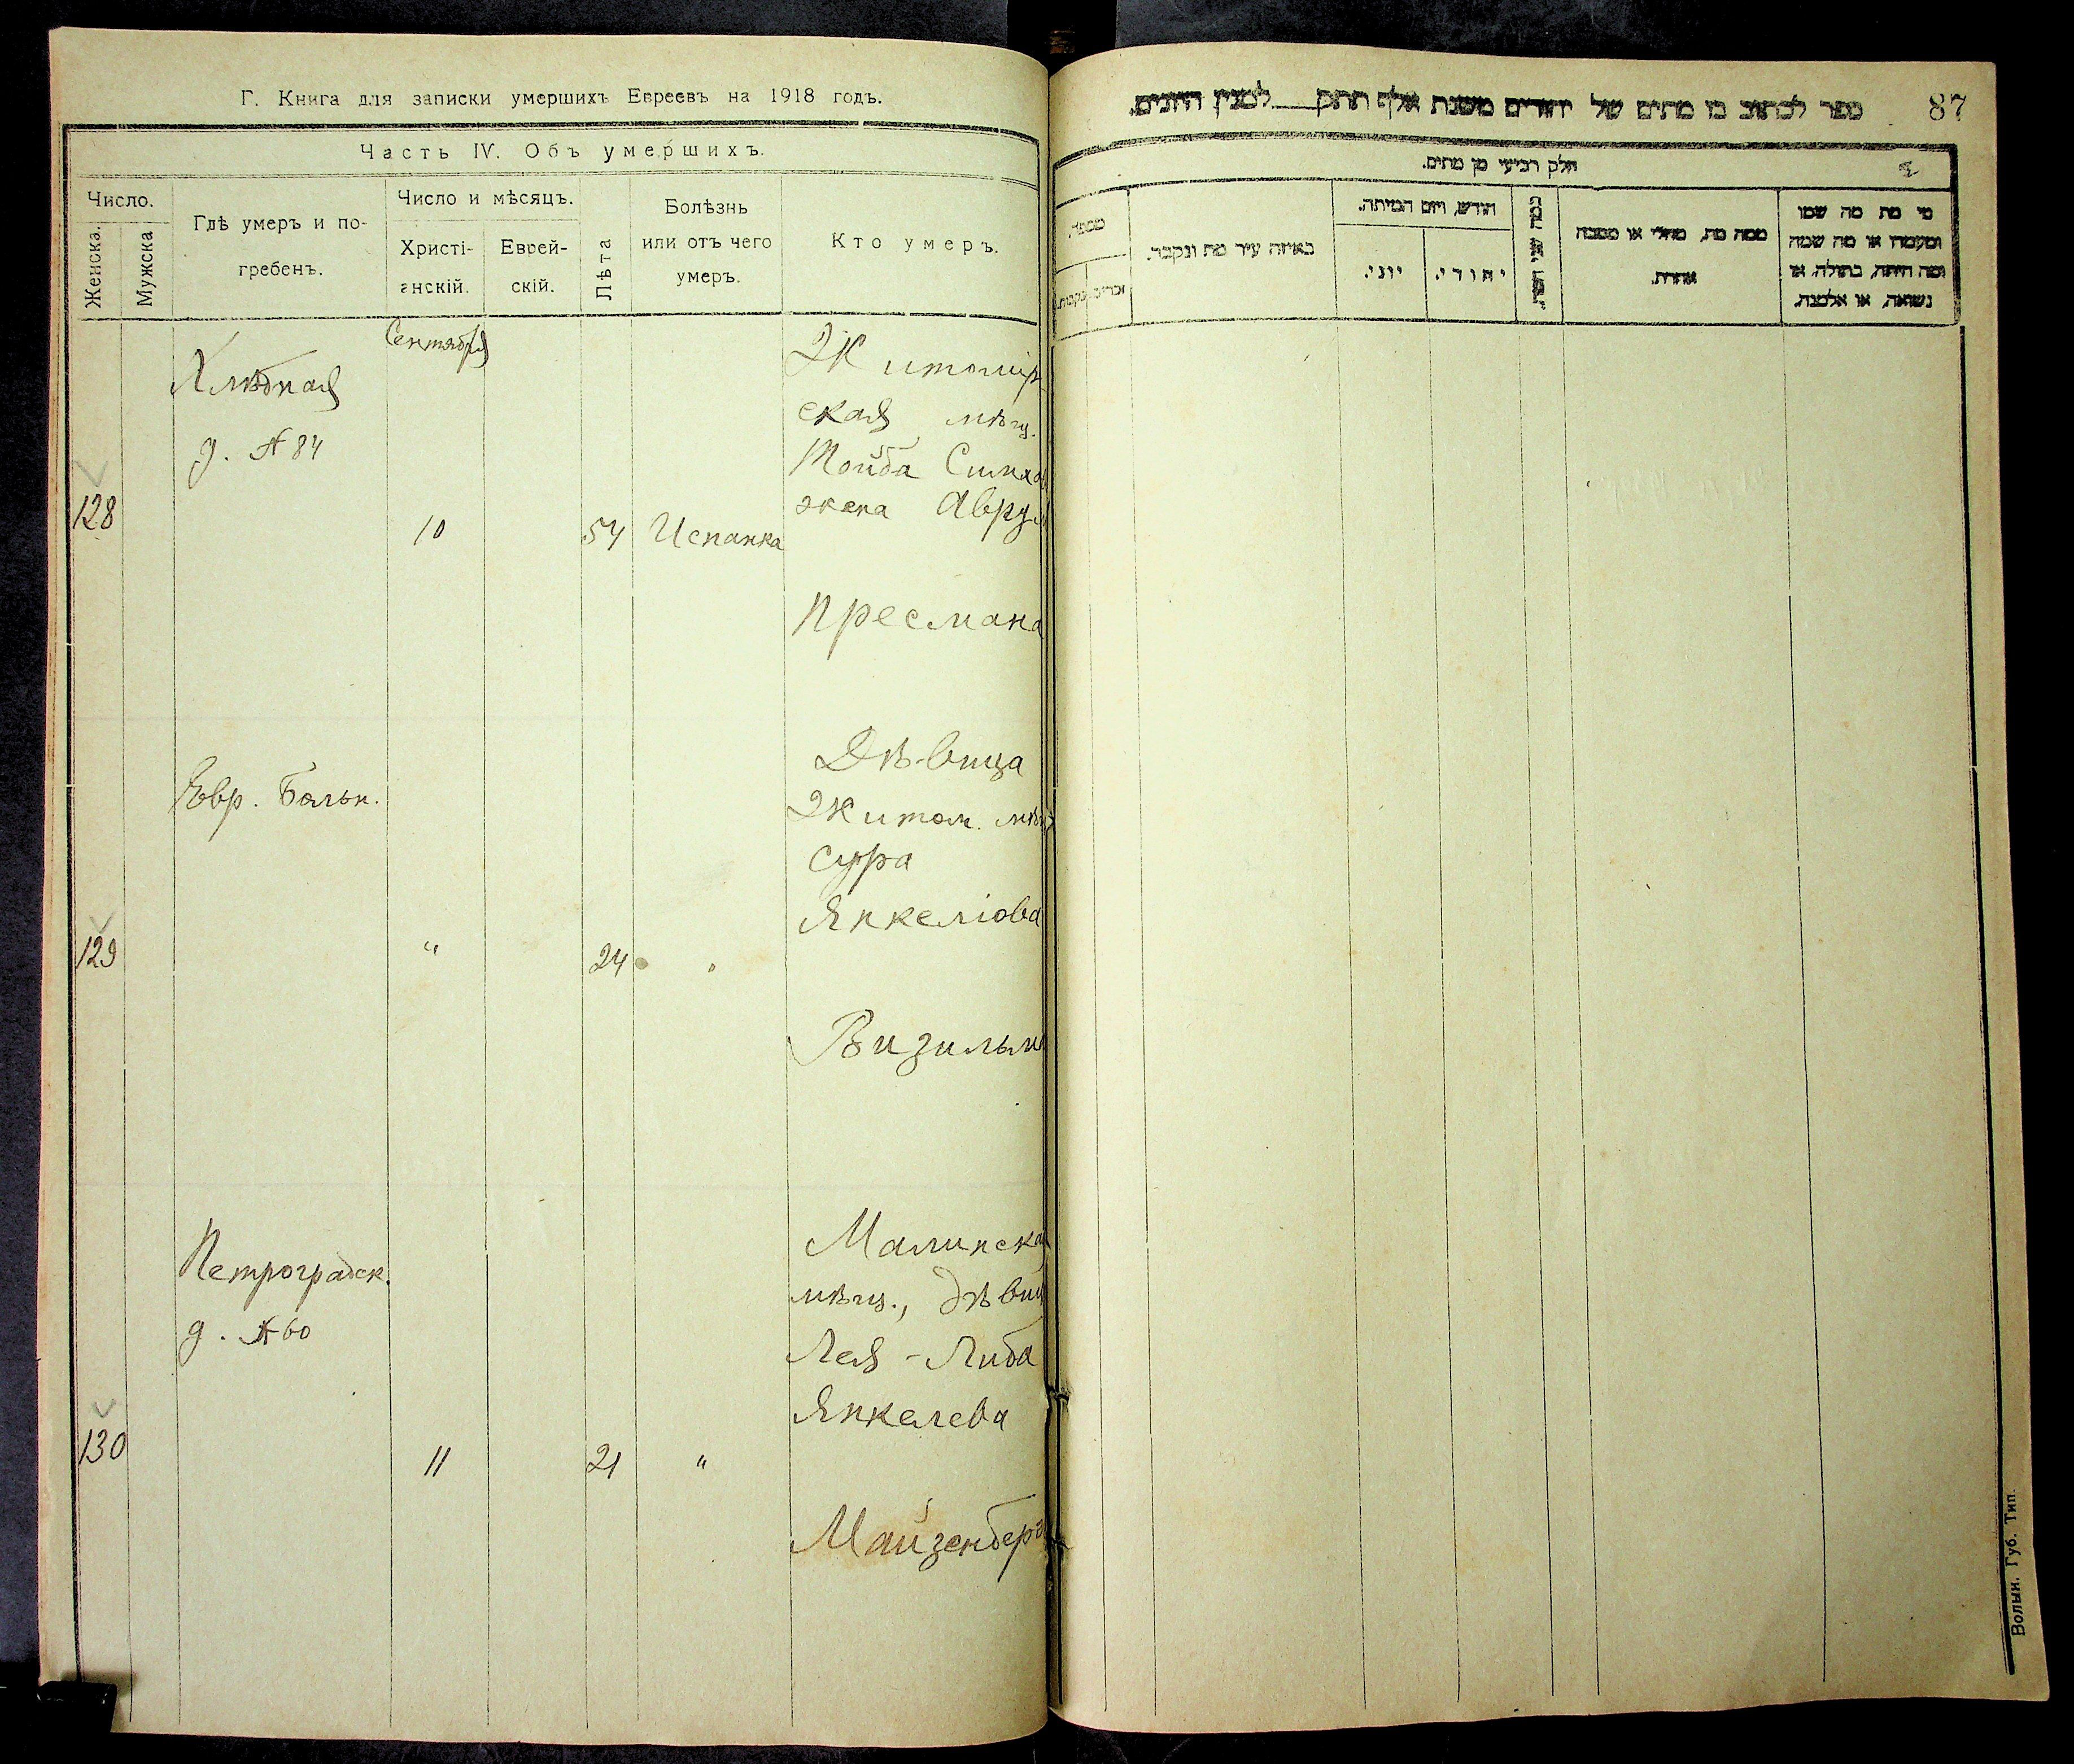 Г. Книга для записки умершихъ Евреевъ на 1918 годъ.
Часть IV. Объ умершихъ.
Число.
Женска.
Мужска
Гдѣ умеръ и по-
гребенъ.
Число и мѣсяцъ.
Христі-
анскій.
Еврей-
скій.
Лѣта
Болѣзнь
или отъ чего
умеръ.
Кто умеръ.
Сентября
128
Хлѣбная
д. № 84
10
54
Испанка
Житомір
ская мѣщ.
Тойба
жена Аврум
Пресмана
129
Евр. Больн.
"
24
"
Дѣвица
Житом. мѣщ
Сура
Янкеліова
Визильм
130
Петроградск.
д. № 60
11
21
"
Малинская
мѣщ., дѣвиц
Лея - Либа
Янкелева
Майзенберг
87
ספר לכתוב בו מתים של יהודים משנת אלף תתק לסנין היונים.
חלק רביעי מן מתים.
מספר.
זכרים
נקבות
באיזה עיר מת ונקבר.
חודש, ויום המיתה.
יוני.
יהודי.
ממה מת, מחלי או מסבה
אחרת.
מי מת מה שמו
ומעמדו או מה שמה
ומה היתה, בתולה, או
נשואה, או אלמנה.
Волын. Губ. Тип.